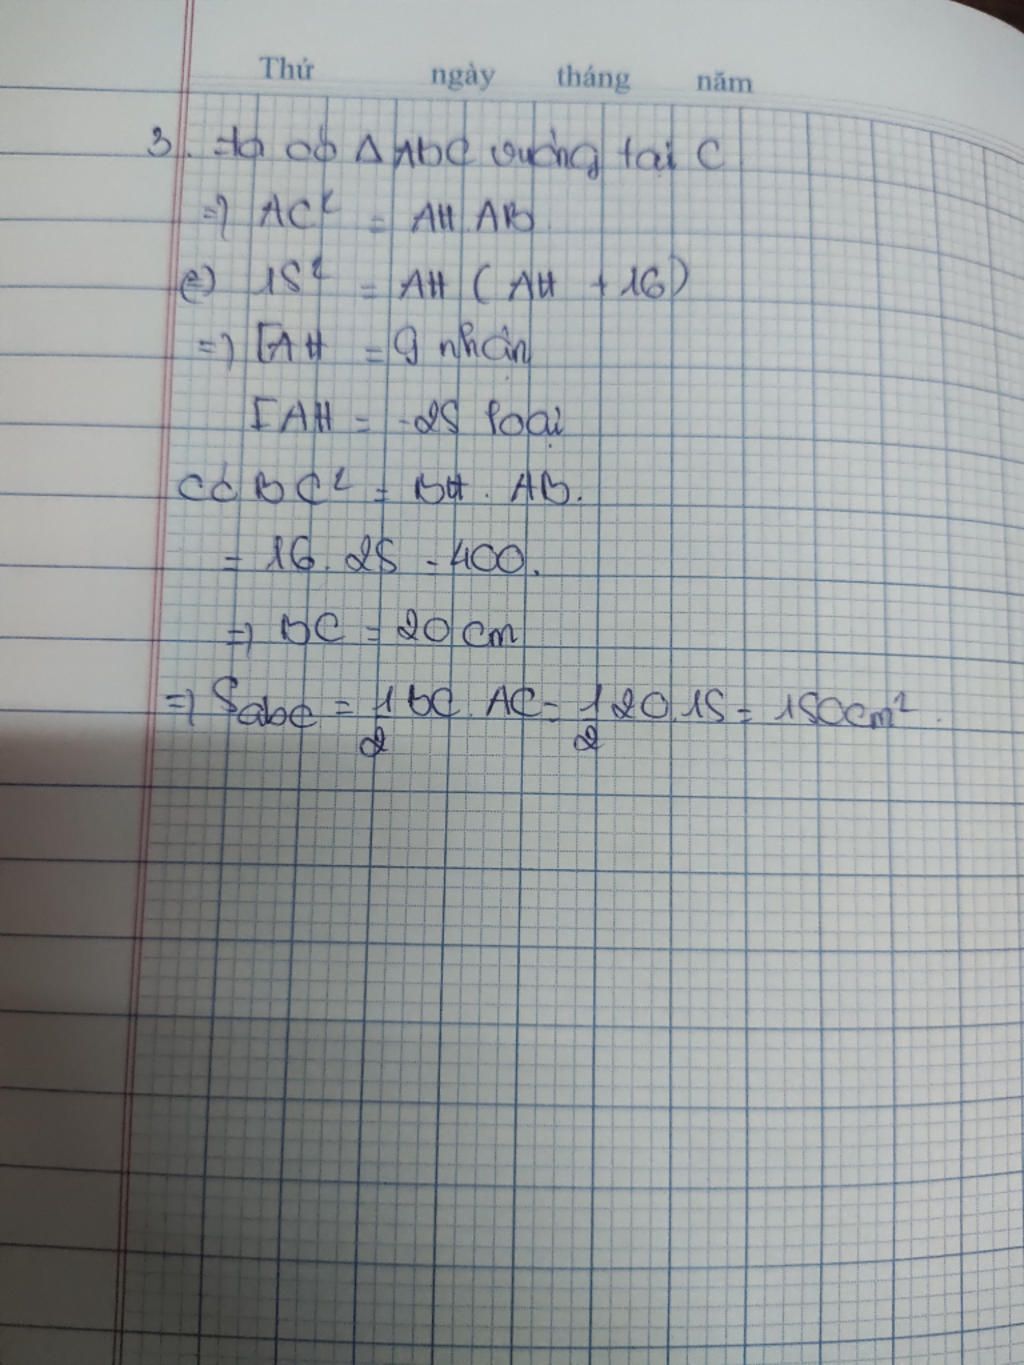 Thứ ngày tháng năm
3. ta có Δ Abc vuông tại C
=> AC² = AH.AB
<=> 15² = AH (AH + 16)
=> [AH = 9 nhận
[AH = -25 loại
Có BC² = BH. AB.
= 16. 25 = 400.
=> BC = 20 cm
=> Sabc = 1/2 bC. AC = 1/2 20.15 = 150cm².